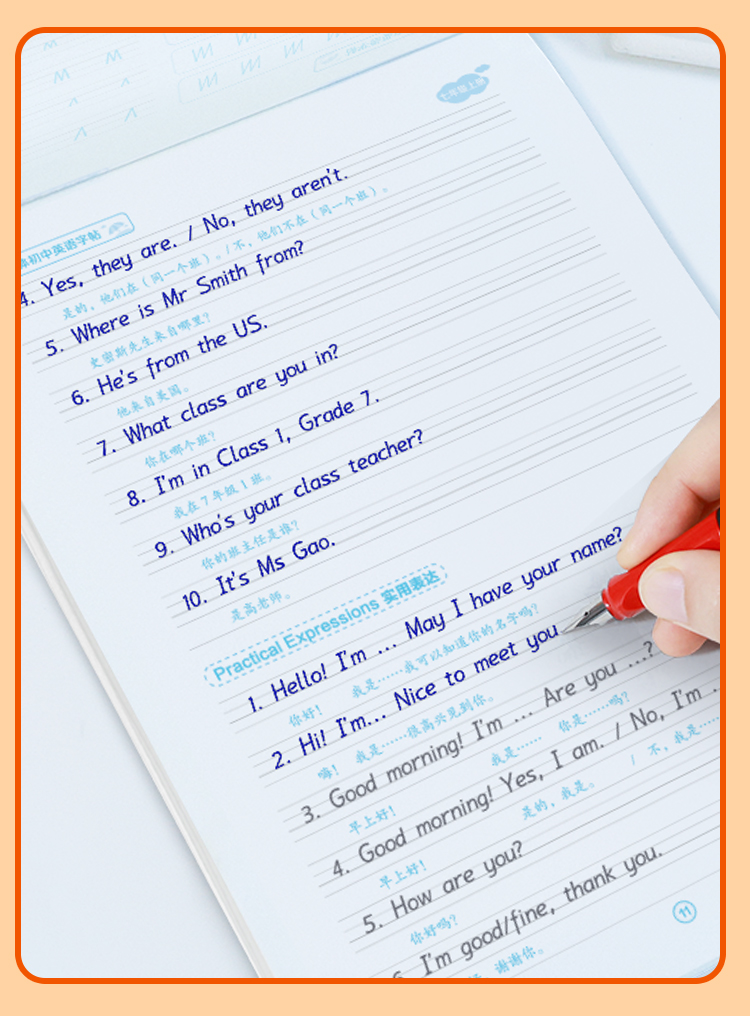 七年级上册
初中英语字帖
4. Yes, they are. / No, they aren't.
是的，他们在（同一个班）。/ 不，他们不在（同一个班）。
5. Where is Mr Smith from?
史密斯先生来自哪里？
6. He's from the US.
他来自美国。
7. What class are you in?
你在哪个班？
8. I'm in Class 1, Grade 7.
我在 7 年级 1 班。
9. Who's your class teacher?
你的班主任是谁？
10. It's Ms Gao.
是高老师。
Practical Expressions 实用表达
1. Hello! I'm ... May I have your name?
你好！ 我是……我可以知道你的名字吗？
2. Hi! I'm... Nice to meet you
嗨！ 我是……很高兴见到你。
3. Good morning! I'm ... Are you ...?
早上好！ 我是…… 你是……吗？
4. Good morning! Yes, I am. / No, I'm ..
早上好！ 是的，我是。 / 不，我是……
5. How are you?
你好吗？
6. I'm good/fine, thank you.
谢谢你。
11